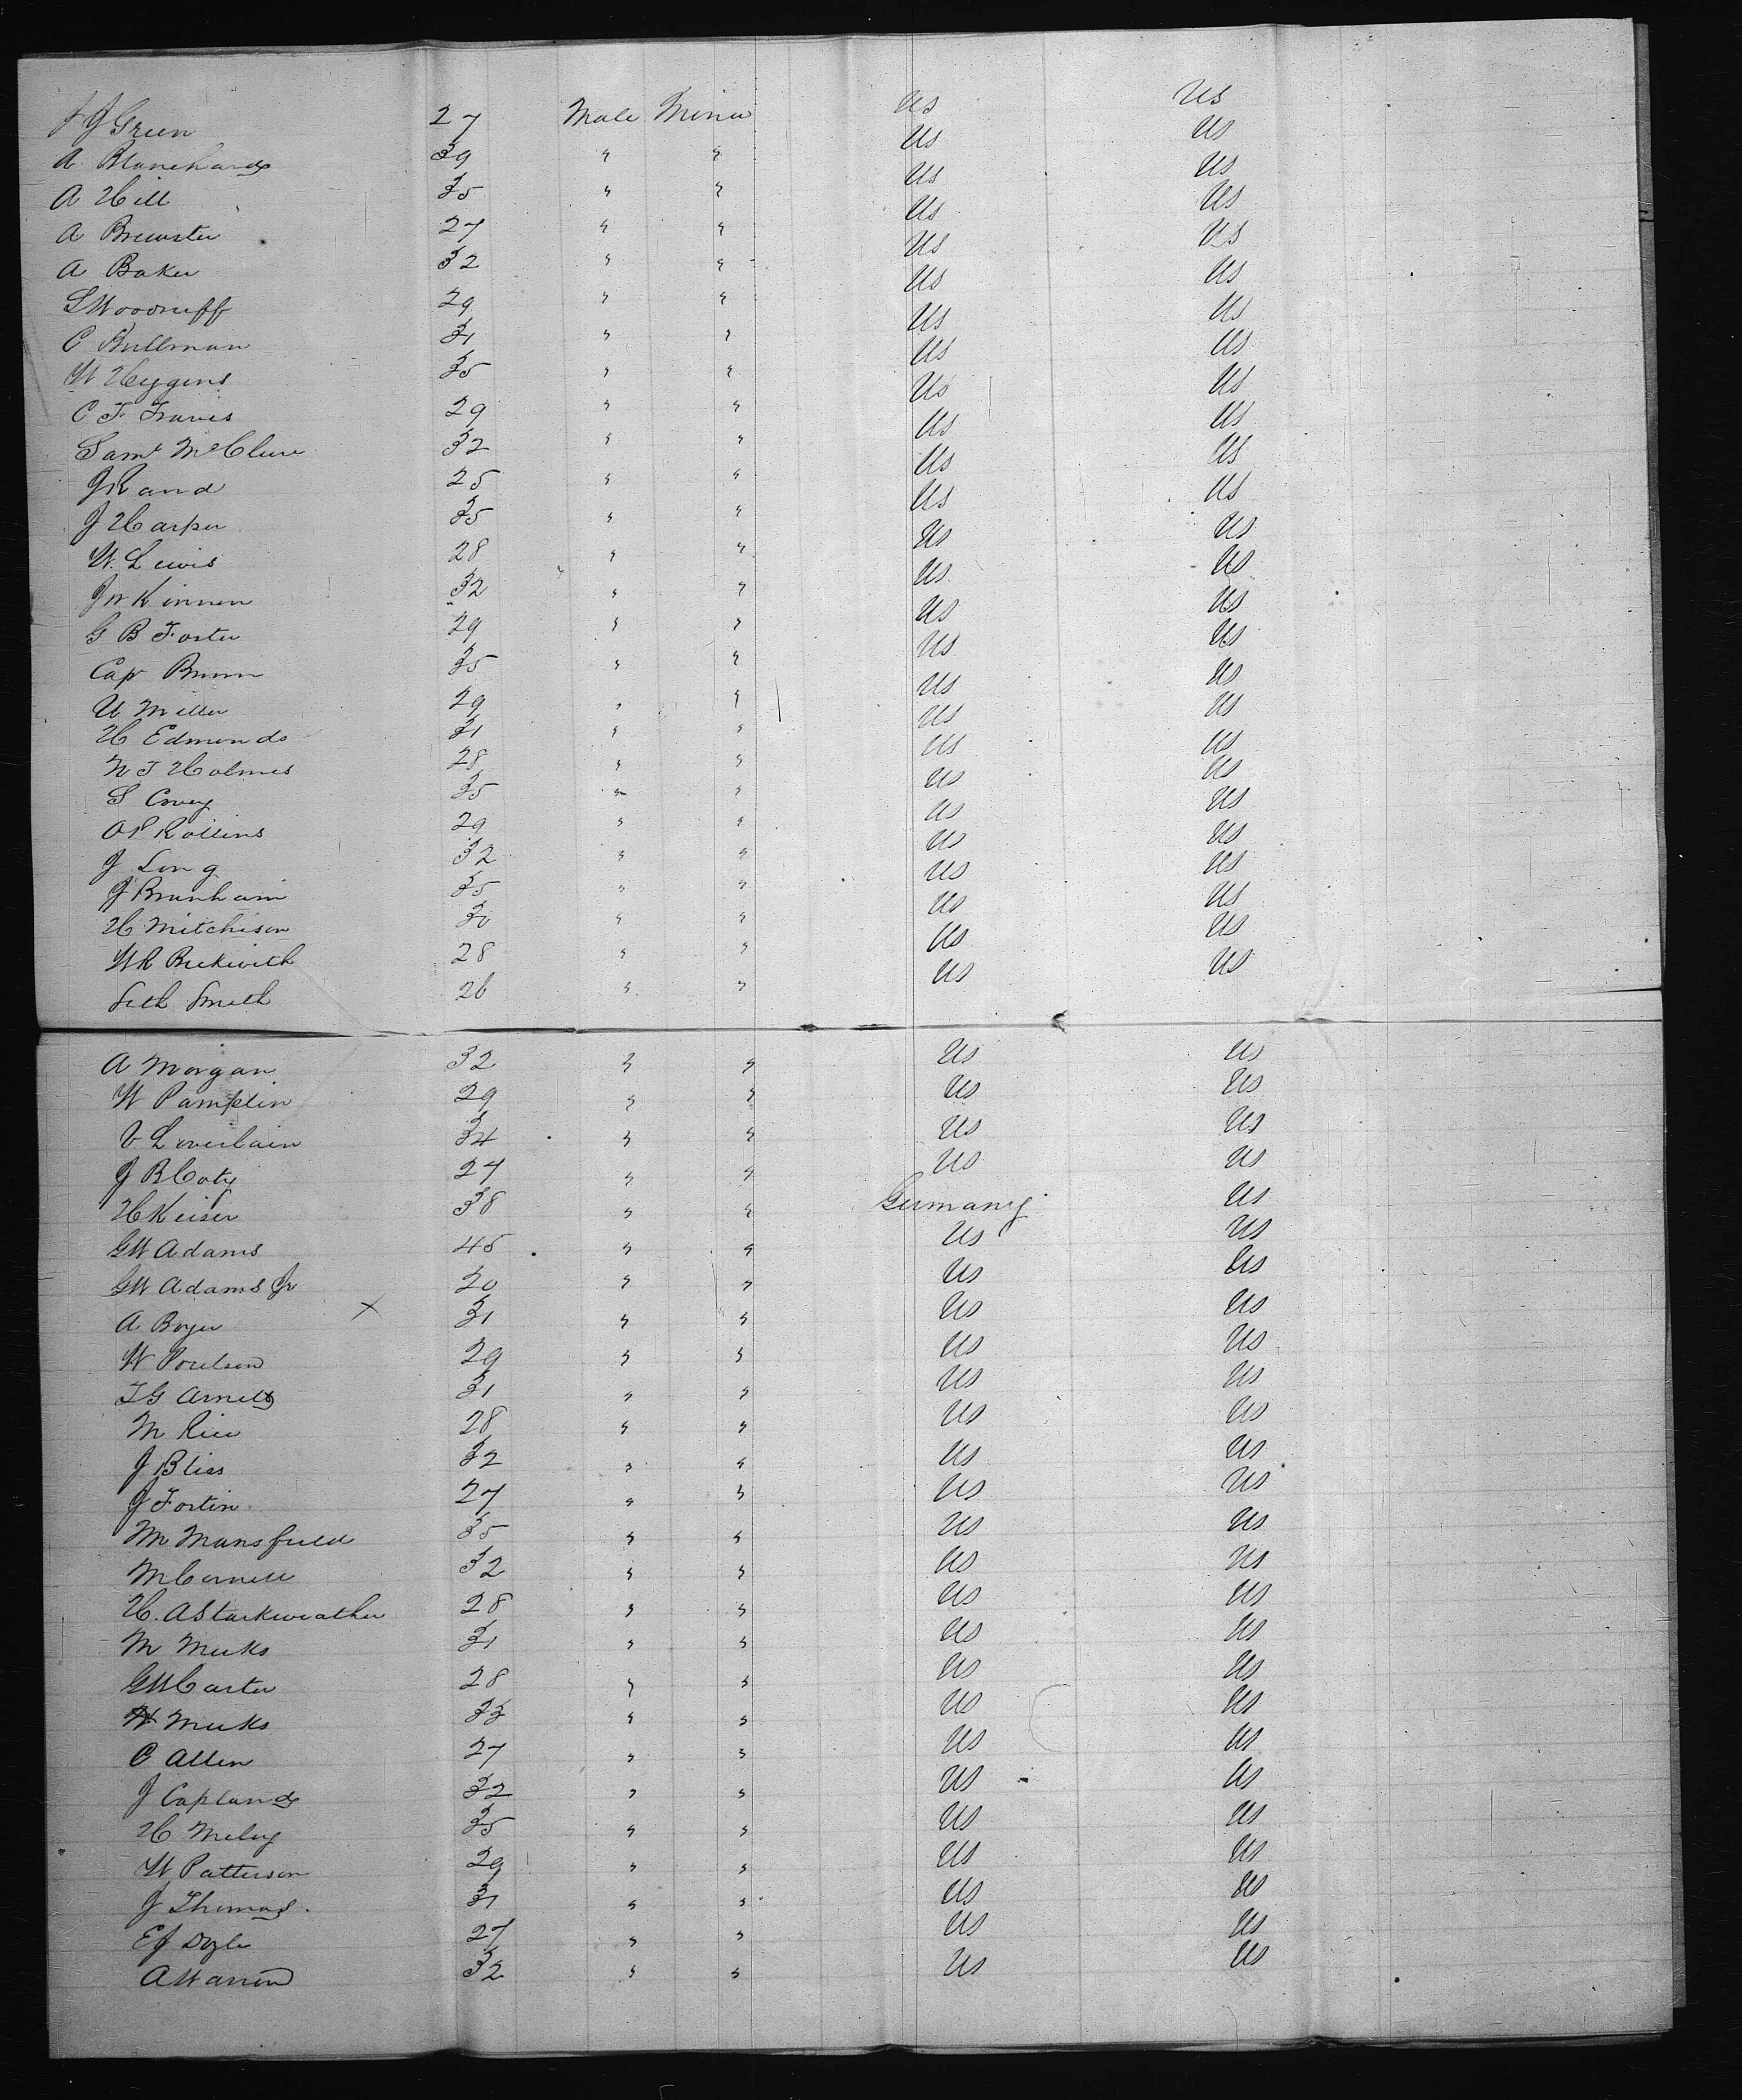 J J Green 27 Male Miner US US
A Blanchard 39 " " US US
A Hill 35 " " US US
A Brewster 27 " " US US
A Baker 32 " " US US
S Woodruff 29 " " US US
C Bullman 31 " " US US
W Heggins 35 " " US US
C F Travis 29 " " US US
Saml McClure 32 " " US US
J Rand 25 " " US US
J Harper 35 " " US US
W. Lewis 28 " " US US
J W Kinnen 32 " " US US
G B Foster 29 " " US US
Cap Brown 35 " " US US
U Miller 29 " " US US
H Edmonds 31 " " US US
N T Holmes 28 " " US US
S Covey 35 " " US US
O P Rollins 29 " " US US
J Long 32 " " US US
J Branham 35 " " US US
H Mitchison 30 " " US US
W R Beckwith 28 " " US US
Seth Smith 26 " " US US
A Morgan 32 " " US US
W Pamplin 29 " " US US
V Loverlain 34 " " US US
J B Coty 27 " " US US
H Keiser 38 " " Germany US
G W Adams 45 " " US US
G W Adams Jr 20 " " US US
A Boyer X 31 " " US US
W Poulson 29 " " US US
T G Arnett 31 " " US US
M Rice 28 " " US US
J Bliss 32 " " US US
J Fortin 27 " " US US
M Mansfield 35 " " US US
M Cornell 32 " " US US
H. A Starkweather 28 " " US US
M Meeks 31 " " US US
G W Carter 28 " " US US
H Meeks 33 " " US US
C Allen 27 " " US US
J Capland 32 " " US US
H Meley 35 " " US US
W Patterson 29 " " US US
J Thomas. 31 " " US US
E J Doyle 27 " " US US
A Warren 32 " " US US